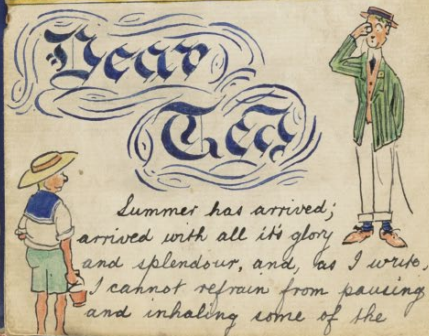 Dear
Ted
Summer has arrived;
arrived with all it's glory
and splendour, and, as I write,
I cannot refrain from pausing
and inhaling some of the